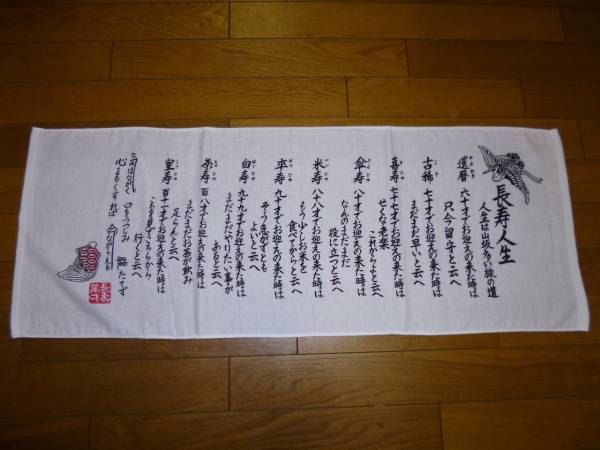 長寿人生
人生は山坂多い旅の道
還暦 六十才でお迎えの来た時は
只今留守と云へ
古稀 七十才でお迎えの来た時は
まだまだ早いと云へ
喜寿 七十七才でお迎えの来た時は
せくな老楽
これからよと云へ
傘寿 八十才でお迎えの来た時は
なんのまだまだ
役に立つと云へ
米寿 八十八才でお迎えの来た時は
もう少しお米を
食べてからと云へ
卒寿 九十才でお迎えの来た時は
そう急がずとも
よいと云へ
白寿 九十九才でお迎えの来た時は
まだまだやりたい事が
あると云へ
茶寿 百八才でお迎えの来た時は
まだまだお茶が飲み
足らんと云へ
皇寿 百十一才でお迎えの来た時は
行くと云へ
気はながく
心まるく 口をつつしみ 腹たてず